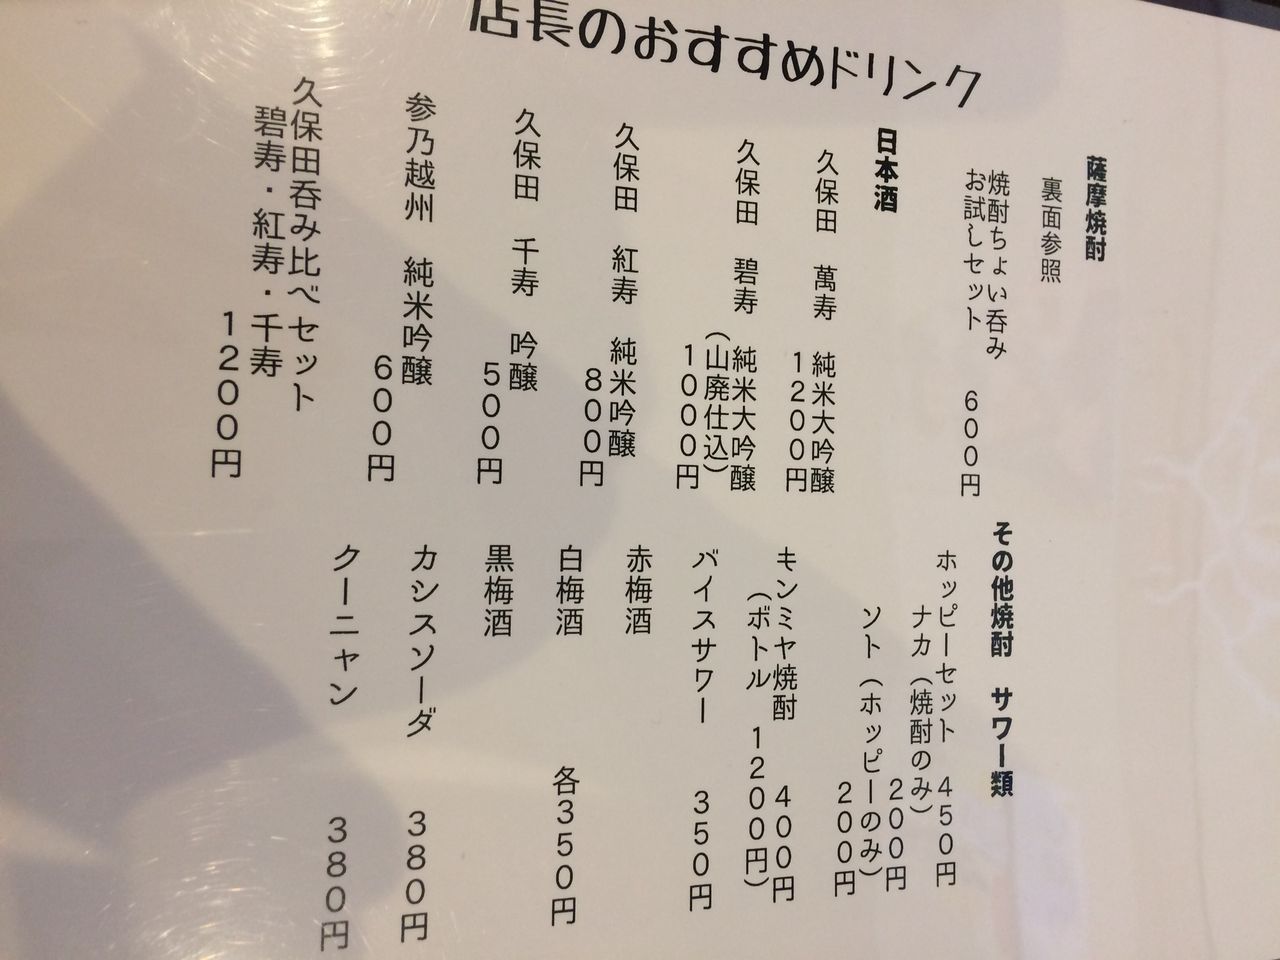 店長のおすすめドリンク
薩摩焼酎
裏面参照
焼酎ちょい呑み
お試しセット 600円
日本酒
久保田 萬寿 純米大吟醸
1200円
久保田 碧寿 純米大吟醸
(山廃仕込)
1000円
久保田 紅寿 純米吟醸
800円
久保田 千寿 吟醸
500円
参乃越州 純米吟醸
600円
久保田呑み比べセット
碧寿・紅寿・千寿
1200円
その他焼酎 サワー類
ホッピーセット 450円
ナカ(焼酎のみ)
200円
ソト(ホッピーのみ)
200円
キンミヤ焼酎 400円
(ボトル 1200円)
バイスサワー 350円
赤梅酒
白梅酒 各350円
黒梅酒
カシスソーダ 380円
クーニャン 380円